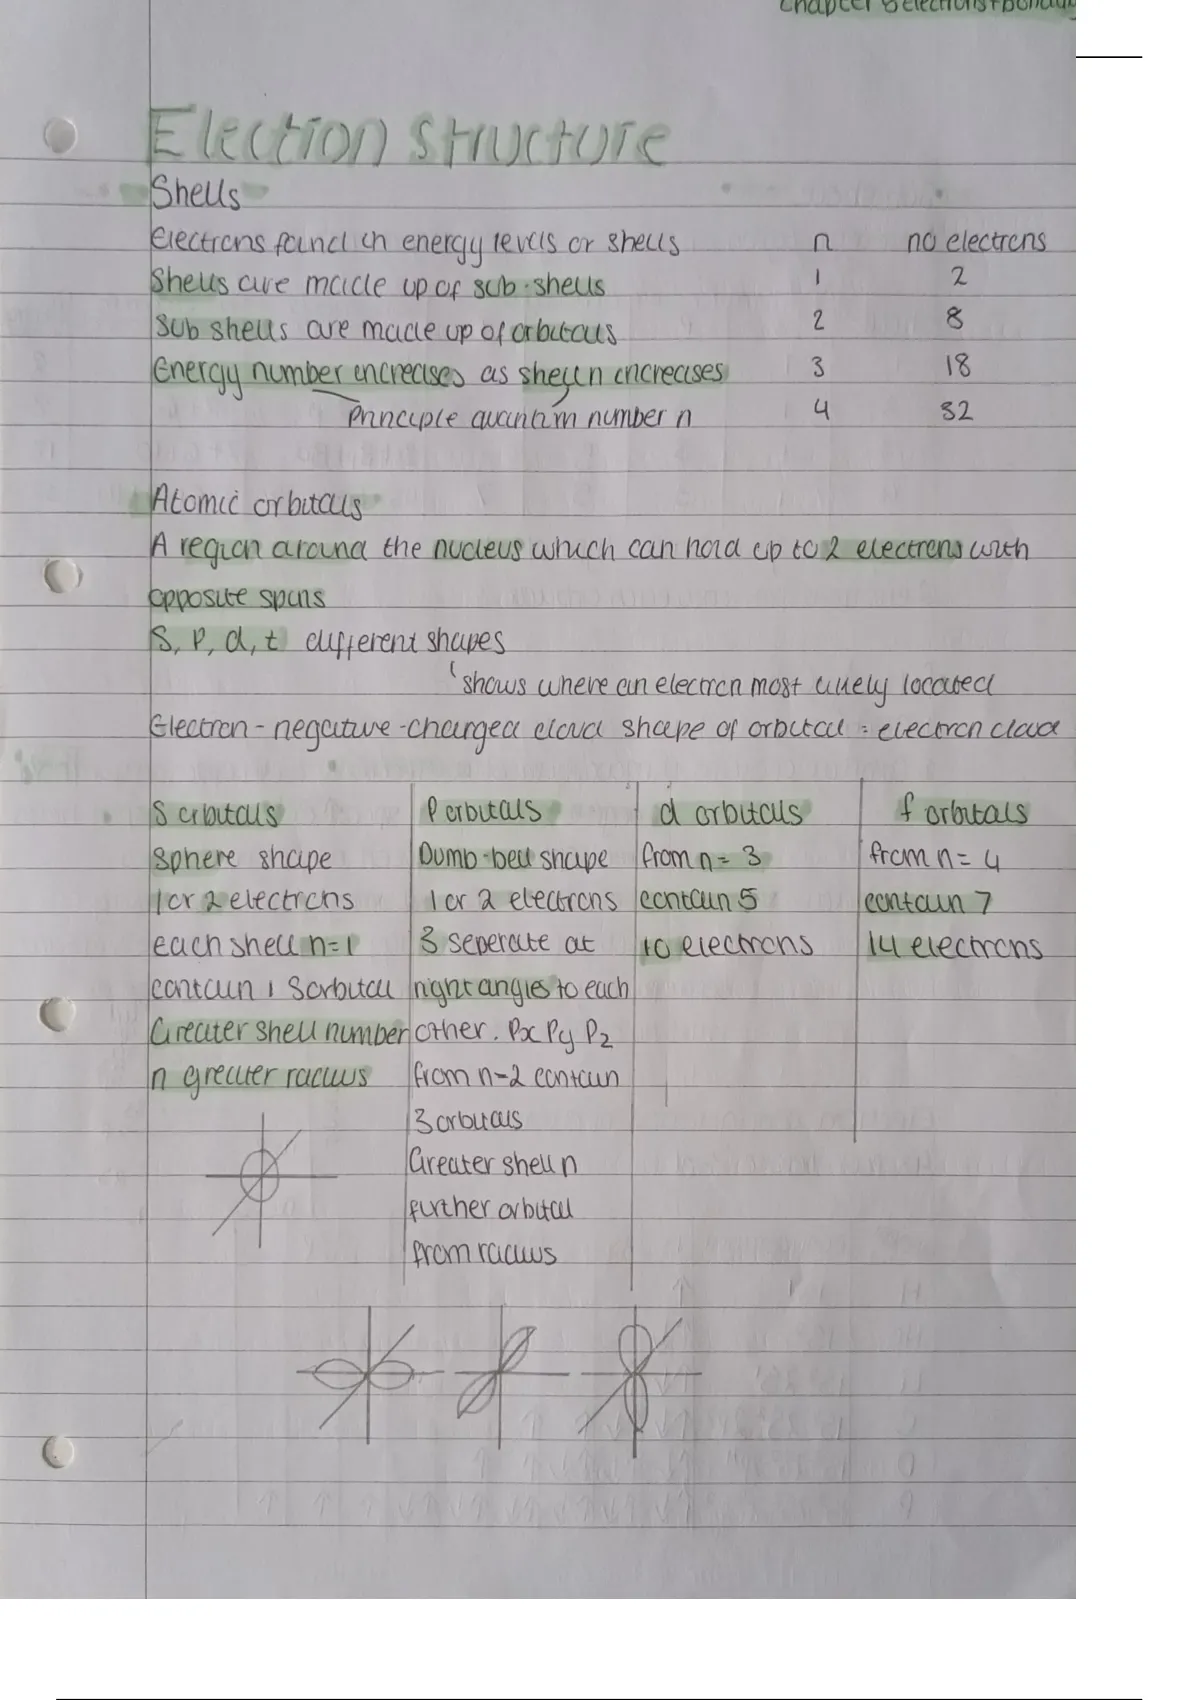 Chapter 5 electrons+bonding
Electron structure
Shells
Electrons found in energy levels or shells n no electrons
Shells are made up of sub-shells 1 2
Sub shells are made up of orbitals 2 8
Energy number increases as shell n increases 3 18
Principle quantum number n 4 32
Atomic orbitals
A region around the nucleus which can hold up to 2 electrons with
opposite spins
S, P, d, f different shapes
shows where an electron most likely located
Electron - negative-charged cloud shape of orbital = electron cloud
S orbitals
Sphere shape
1 or 2 electrons
each shell n=1
contain 1 S orbital
Greater shell number
n greater radius
P orbitals
Dumb-bell shape
1 or 2 electrons
3 seperate at
right angles to each
other. Px Py Pz
from n=2 contain
3 orbitals
Greater shell n
further orbital
from radius
d orbitals
from n = 3
contain 5
10 electrons
f orbitals
from n = 4
contain 7
14 electrons